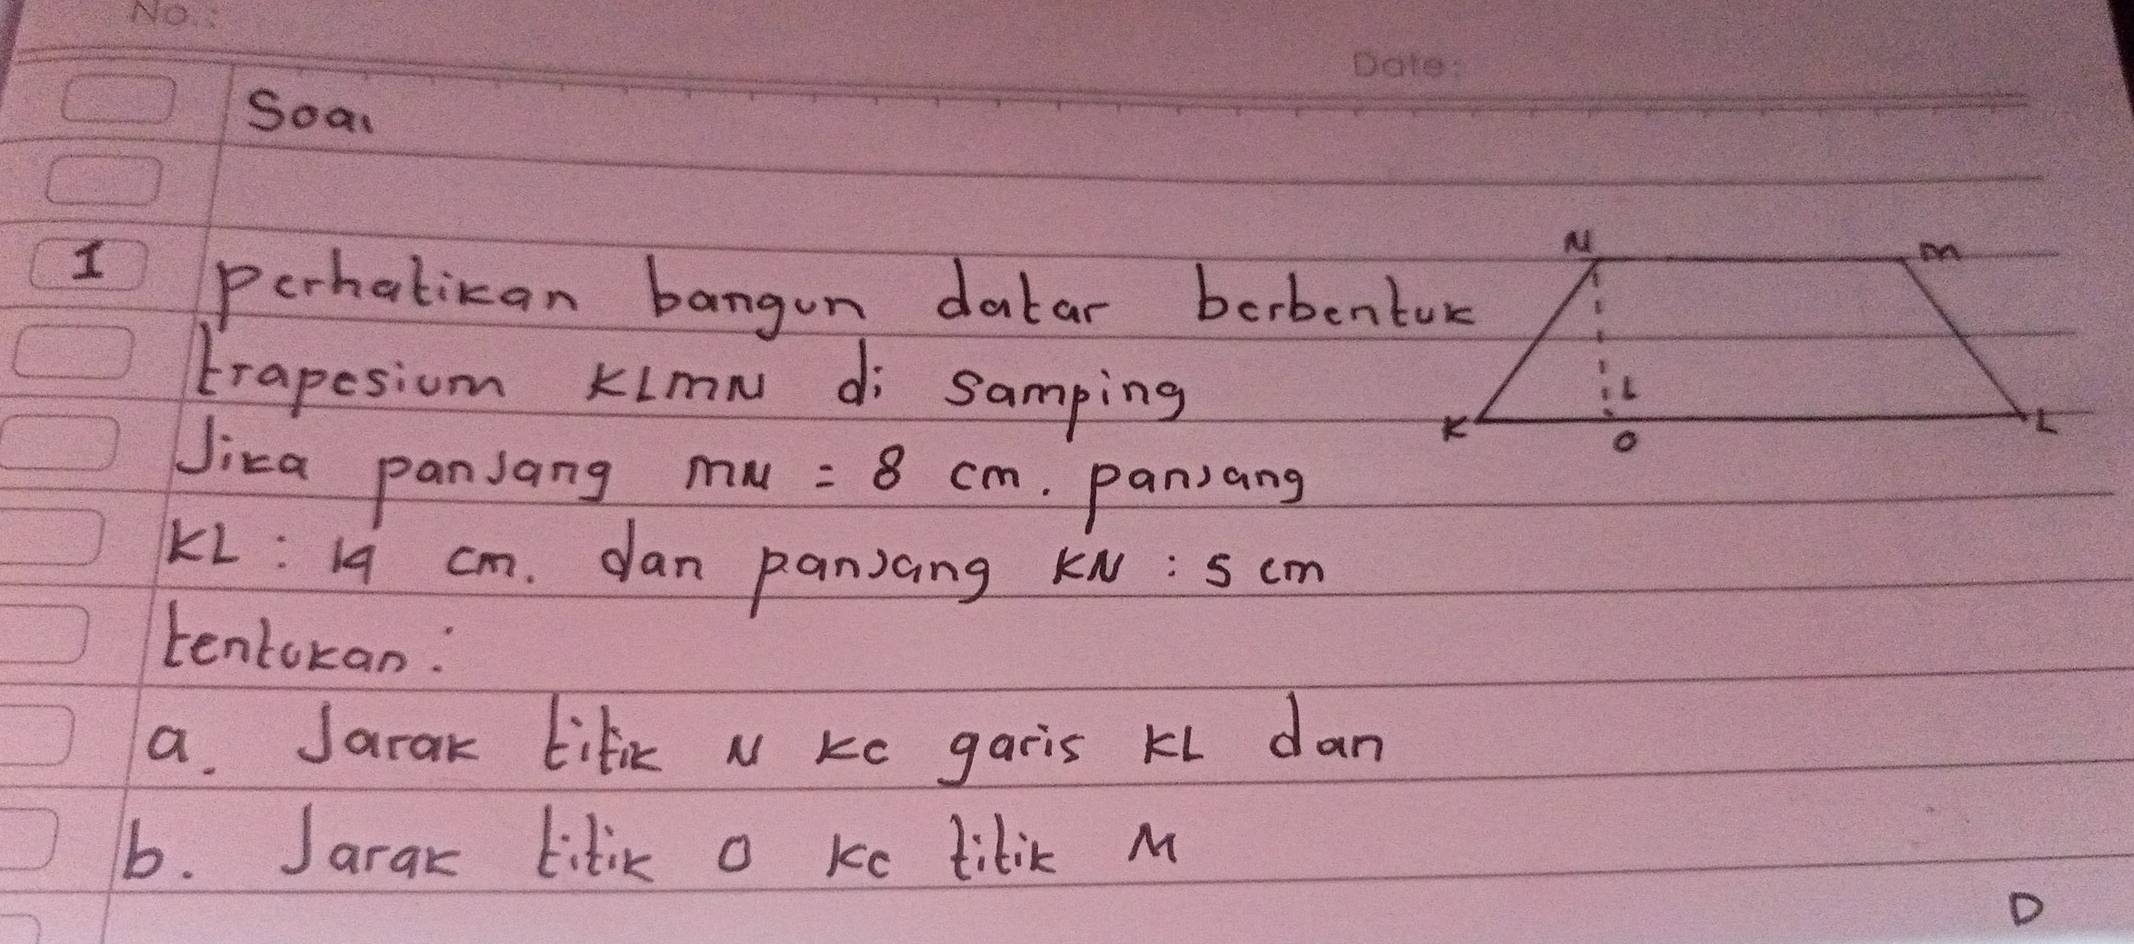 No.:
Date:
Soal
1 perhatikan bangun datar berbentuk
trapesium KLMN di samping
Jika panjang MN = 8 cm. panjang
KL : 14 cm. dan panjang KN : 5 cm
tentukan :
a. Jarak titik N ke garis KL dan
b. Jarak titik O ke titik M
N
M
L
K
O
L
D